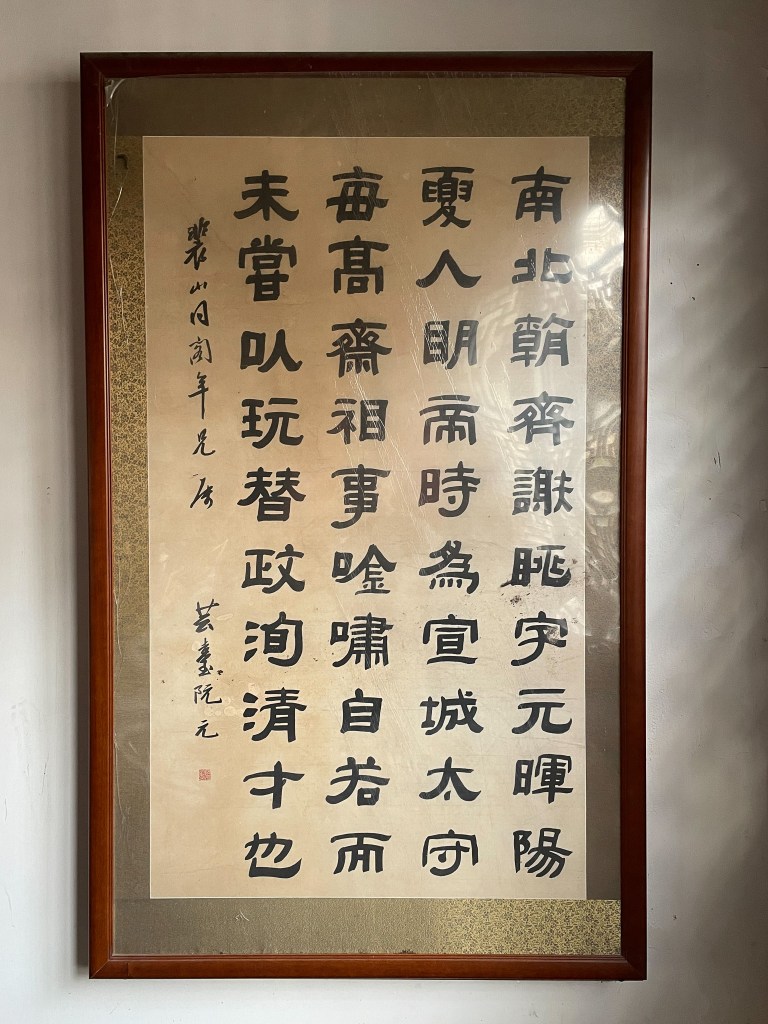 南北朝齊謝朓字元暉陽
夏人明帝時為宣城太守
每高齋眎事唫嘯自若而
未嘗以玩替政洵清才也
裴山同閣年兄属
芸臺阮元